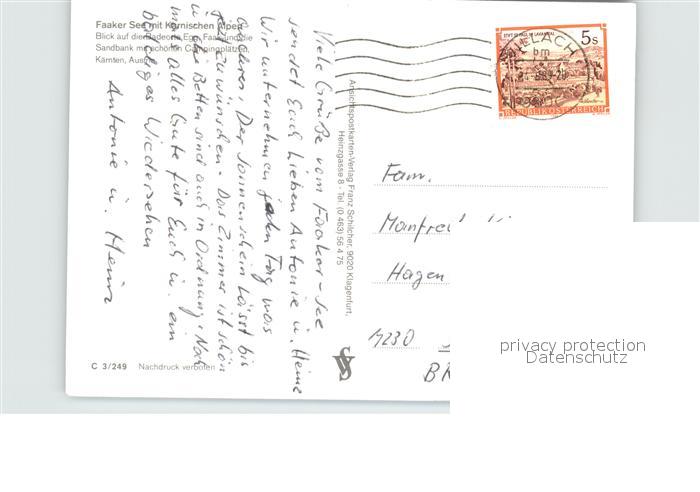 Faaker See mit Karnischen Alpen
Blick auf die Badeorte Egg, Faak und die
Sandbank mit schönen Campingplätzen,
Kärnten, Austria
Viele Grüße vom Faaker-See
sendet Euch Lieben Antonie u. Heinz
Wir unternehmen jeden Tag was
anderes. Der Sonnenschein lässt bis
jetzt zu wünschen. Das Zimmer ist schön
u. die Betten sind auch in Ordnung. Noch
mal Alles Gute für Euch u. ein
baldiges Wiedersehen
Antonie u. Heinz
Ansichtspostkarten-Verlag Franz Schilcher, 9020 Klagenfurt,
Heinzgasse 8 - Tel. (0 463) 56 4 75
STIFT ST. PAUL IM LAVANTTAL
5s
REPUBLIK ÖSTERREICH
VILLACH
Fam.
Manfred
Hagen
4230
C 3/249 Nachdruck verboten
privacy protection
Datenschutz